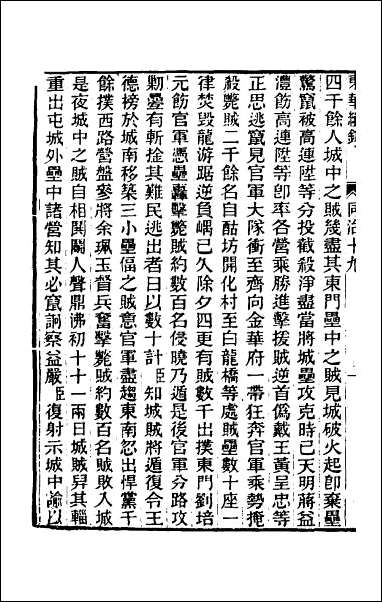 東華續錄 同治十九
四千餘人城中之賊幾盡其東門壘中之賊見城破火起卽棄壘
驚竄被高連陞等分投截殺淨盡當將城壘攻克時已天明蔣益
澧飭高連陞等卽率各營乘勝進擊援賊逆首僞戴王黃呈忠等
正思逃竄見官軍大隊衝至齊向金華府一帶狂奔官軍乘勢掩
殺斃賊二千餘名自酤坊開化村至白龍橋等處賊壘數十座一
律焚毀龍游踞逆負嵎已久除夕四更有賊數千出撲東門劉培
元飭官軍憑壘轟擊斃賊約數百名侵曉乃遁是後官軍分路攻
勦曡有斬捡其難民逃出者日以數十計臣知城賊將遁復令王
德榜於城南移築三小壘偪之賊意官軍盡趨東南忽出悍黨千
餘撲西路營盤參將余珮玉督兵奮擊斃賊約數百名賊敗入城
是夜城中之賊自相閧鬬人聲鼎沸初十十一兩日城賊舁其輜
重出屯城外壘中諸營知其必竄詗察益嚴臣復射示城中諭以